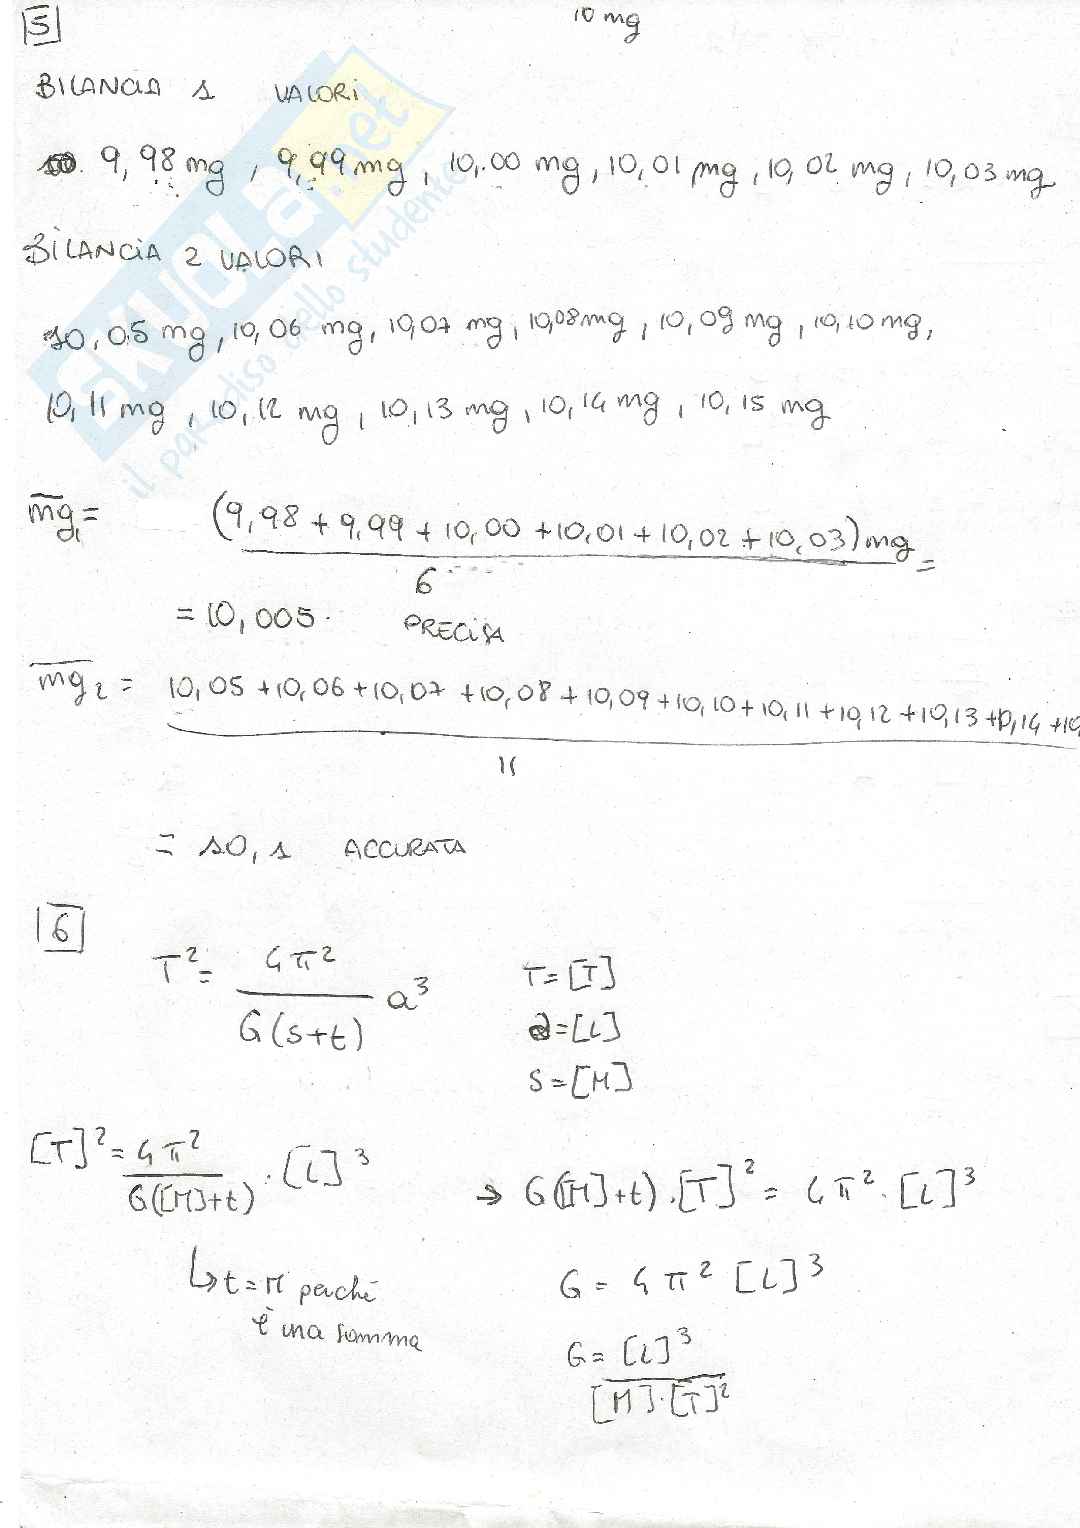 5
10 mg
BILANCIA 1 VALORI
9,98 mg, 9,99 mg, 10,00 mg, 10,01 mg, 10,02 mg, 10,03 mg
BILANCIA 2 VALORI
10,05 mg, 10,06 mg, 10,07 mg, 10,08 mg, 10,09 mg, 10,10 mg,
10,11 mg, 10,12 mg, 10,13 mg, 10,14 mg, 10,15 mg
SKUOLA.net
il paradiso dello studente
m̅g̅₁ = (9,98 + 9,99 + 10,00 + 10,01 + 10,02 + 10,03) mg =
6
= 10,005. PRECISA
m̅g̅₂ = 10,05 + 10,06 + 10,07 + 10,08 + 10,09 + 10,10 + 10,11 + 10,12 + 10,13 + 10,14 + 10,
11
= 10,1 ACCURATA
6
T² = 4π² / G(s+t) a³
T = [T]
a = [L]
s = [M]
[T]² = 4π² / G([M]+t) · [L]³
→ G([M]+t) · [T]² = 4π² · [L]³
↳ t = M perché
è una somma
G = 4π² [L]³
G = [L]³ / [M]·[T]²